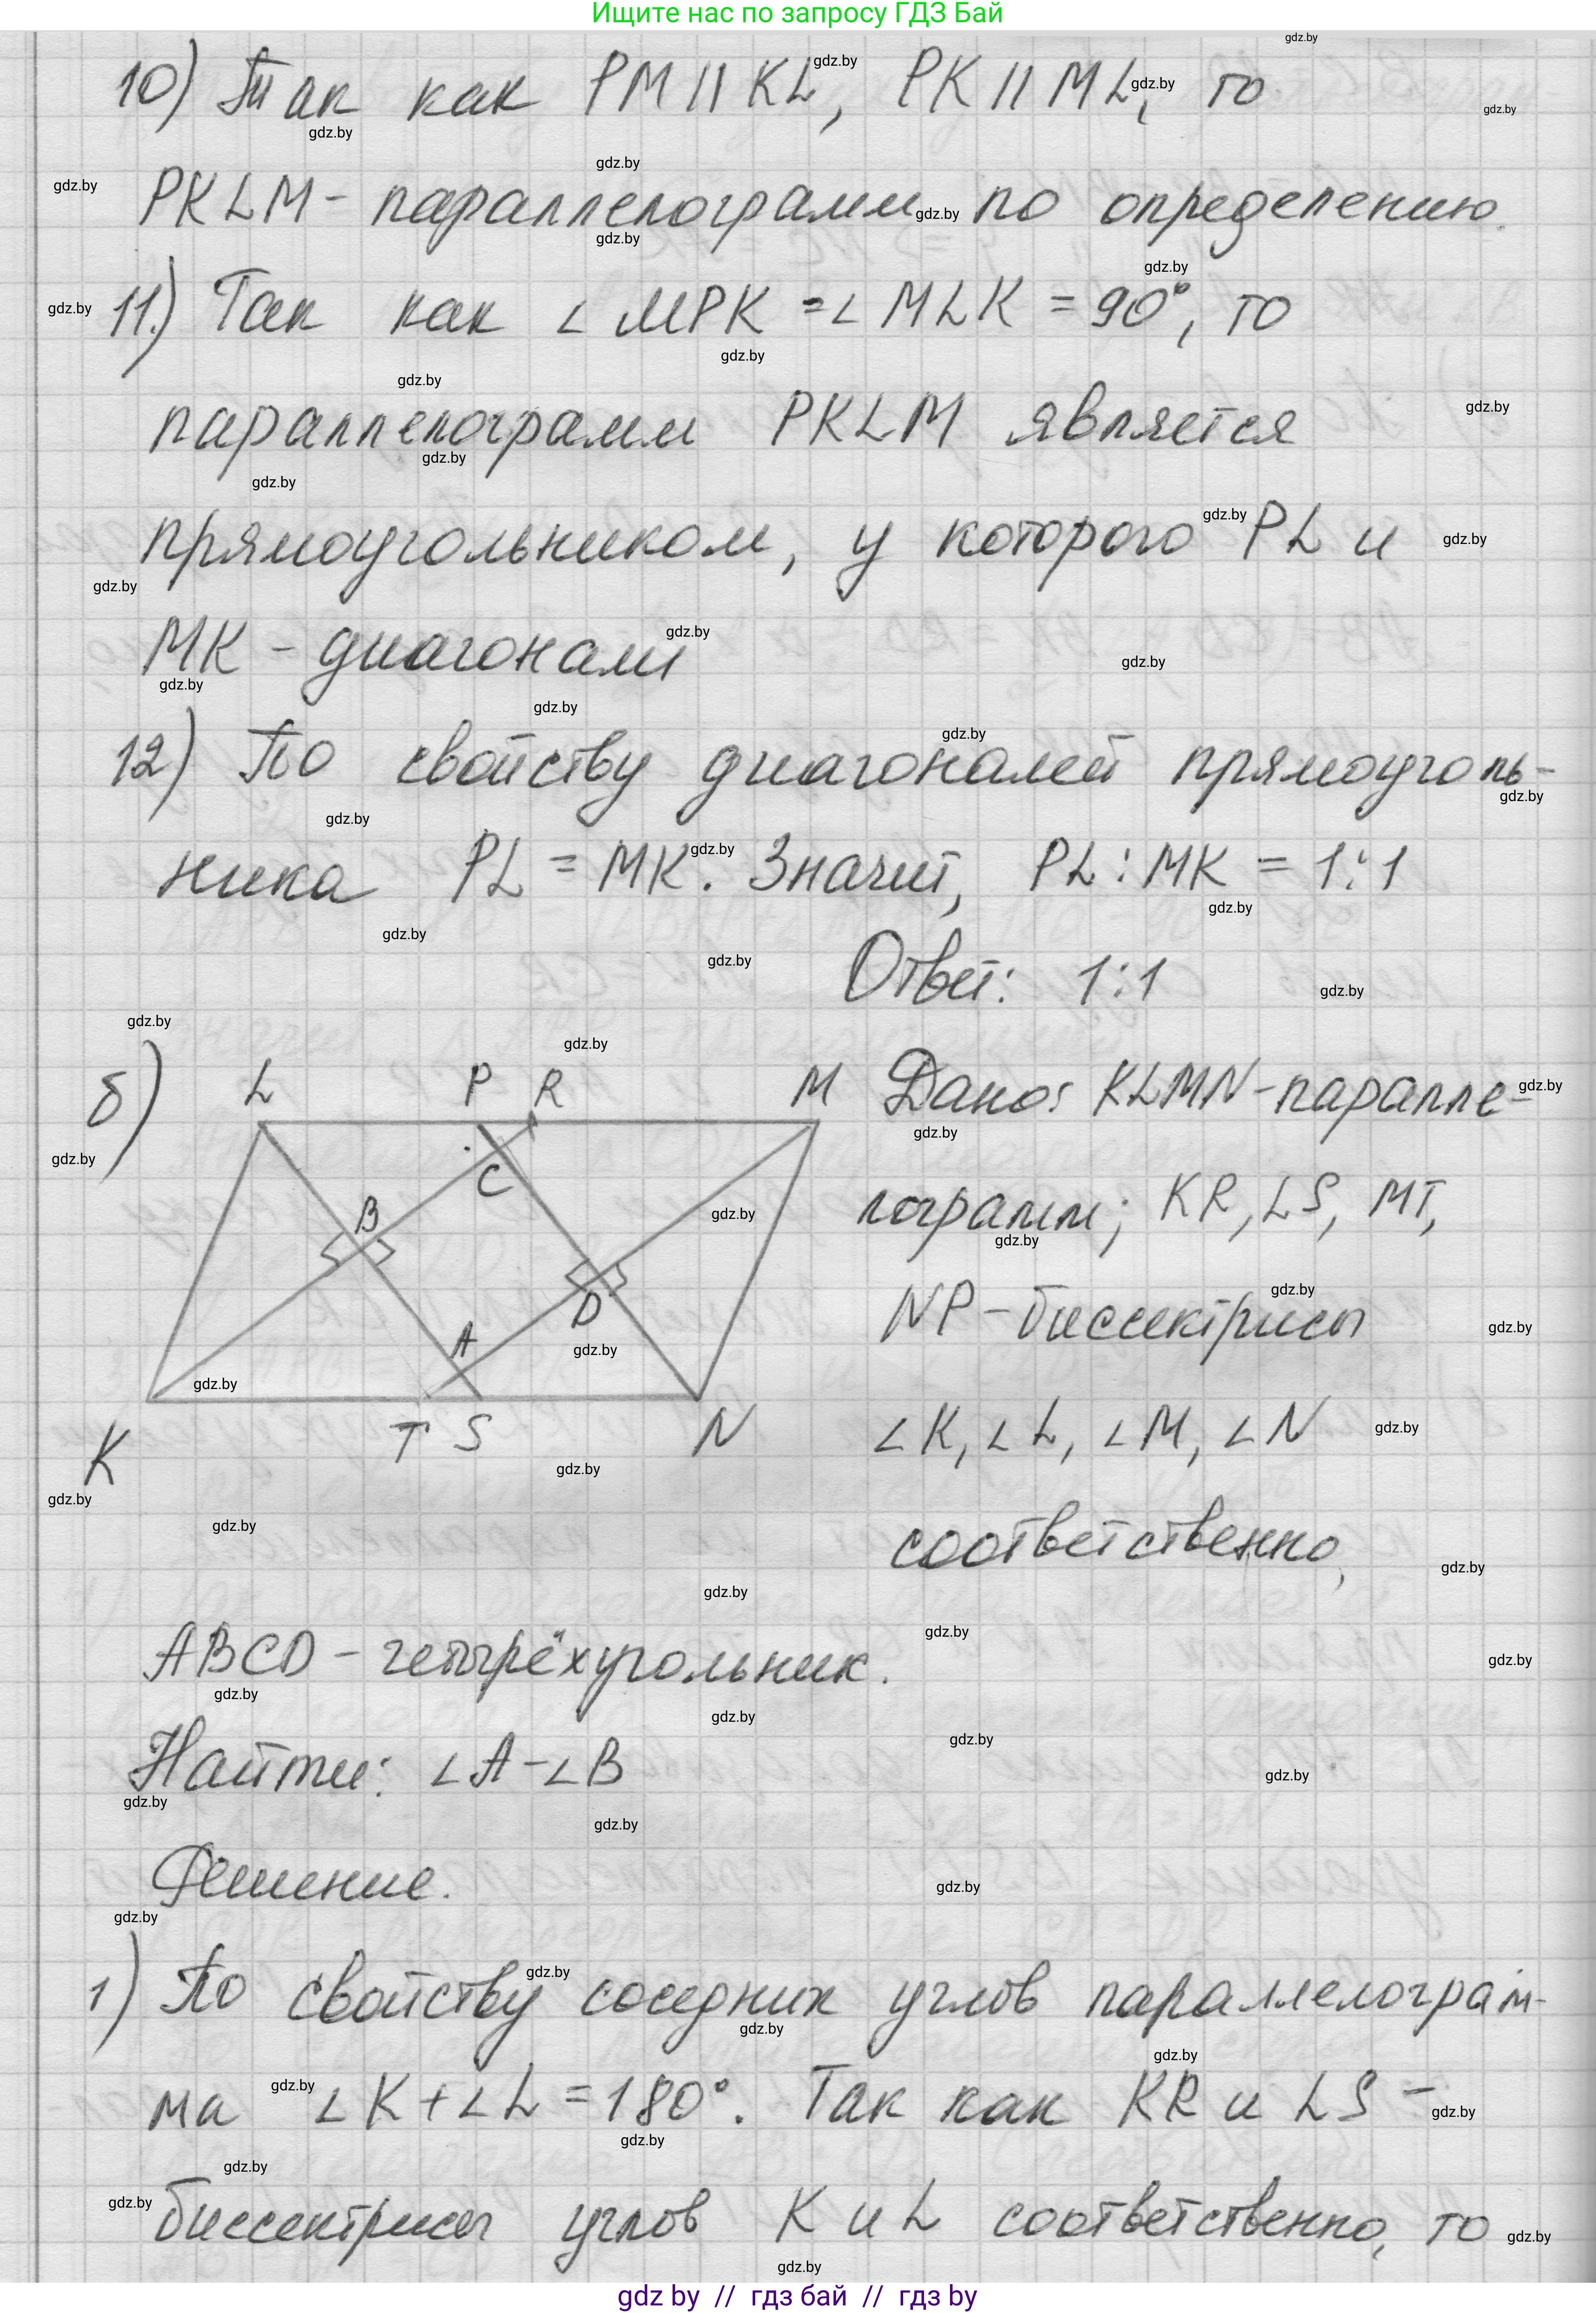 Ищите нас по запросу ГДЗ Бай
10) Так как PM || KL, PK || ML, то
PKLM - параллелограмм по определению.
11.) Так как ∠MPK = ∠MLK = 90°, то
параллелограмм PKLM является
прямоугольником, у которого PL и
MK - диагонали
12) По свойству диагоналей прямоуголь-
ника PL = MK. Значит, PL : MK = 1:1
Ответ: 1:1
б) L P R M
Дано: KLMN - паралле-
лограмм; KR, LS, MT,
NP - биссектрисы
∠K, ∠L, ∠M, ∠N
соответственно,
B C
A D
K T S N
ABCD - четырёхугольник.
Найти: ∠A - ∠B
Решение.
1) По свойству соседних углов параллелограм-
ма ∠K + ∠L = 180°. Так как KR и LS -
биссектрисы углов K и L соответственно, то
gdz by // гдз бай // гдз by
gdz.by